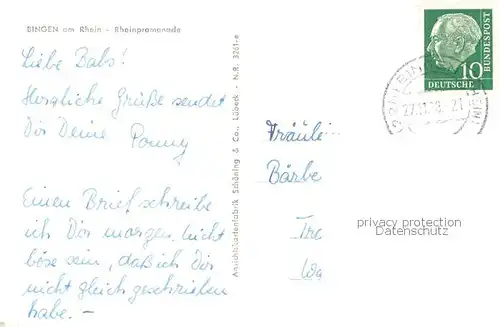 BINGEN am Rhein - Rheinpromenade
Liebe Babs!
Herzliche Grüße sendet
Dir Deine Ponny
Einen Brief schreibe
ich Dir morgen, nicht
böse sein, daß ich Dir
nicht gleich geschrieben
habe. –
Ansichtskartenfabrik Schöning & Co., Lübeck - N.R. 3261-e
10
DEUTSCHE
BUNDESPOST
Fräulei
Bärbe
privacy protection
Datenschutz